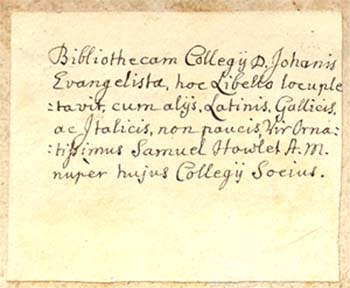 Bibliothecam Collegij D. Johanis
Evangelistæ, hoc Libello locuple
:tavit, cum alijs, Latinis, Gallicis,
ac Italicis, non paucis, Vir Orna-
:tissimus Samuel Howlet A. M.
nuper hujus Collegij Socius.